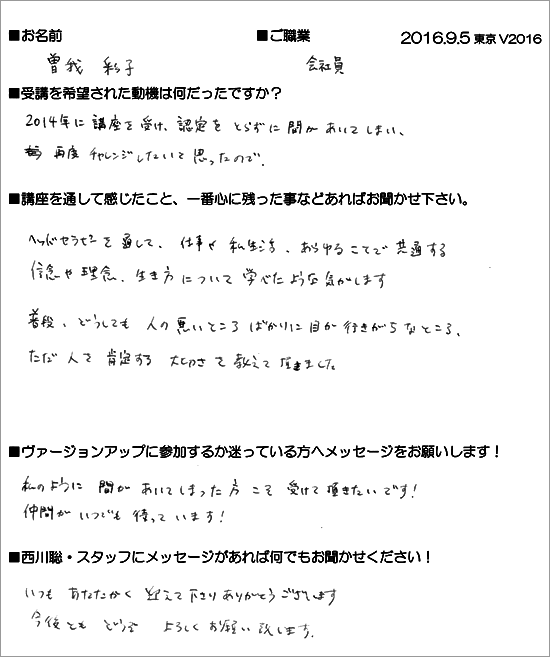 ■お名前 ■ご職業 2016.9.5 東京 V2016
曽我 彩子 会社員
■受講を希望された動機は何だったですか？
2014年に講座を受け、認定をとらずに間があいてしまい、
再度チャレンジしたいと思ったので。
■講座を通して感じたこと、一番心に残った事などあればお聞かせ下さい。
ヘッドセラピーを通して、仕事や私生活、あらゆることで共通する
信念や理念、生き方について学べたような気がします
普段、どうしても人の悪いところばかりに目が行きがちなところ、
ただ人を肯定する大切さを教えて頂きました。
■ヴァージョンアップに参加するか迷っている方へメッセージをお願いします！
私のように間があいてしまった方こそ受けて頂きたいです！
仲間がいつでも待っています！
■西川聡・スタッフにメッセージがあれば何でもお聞かせください！
いつもあたたかく迎えて下さりありがとうございます
今後ともどうぞよろしくお願い致します。